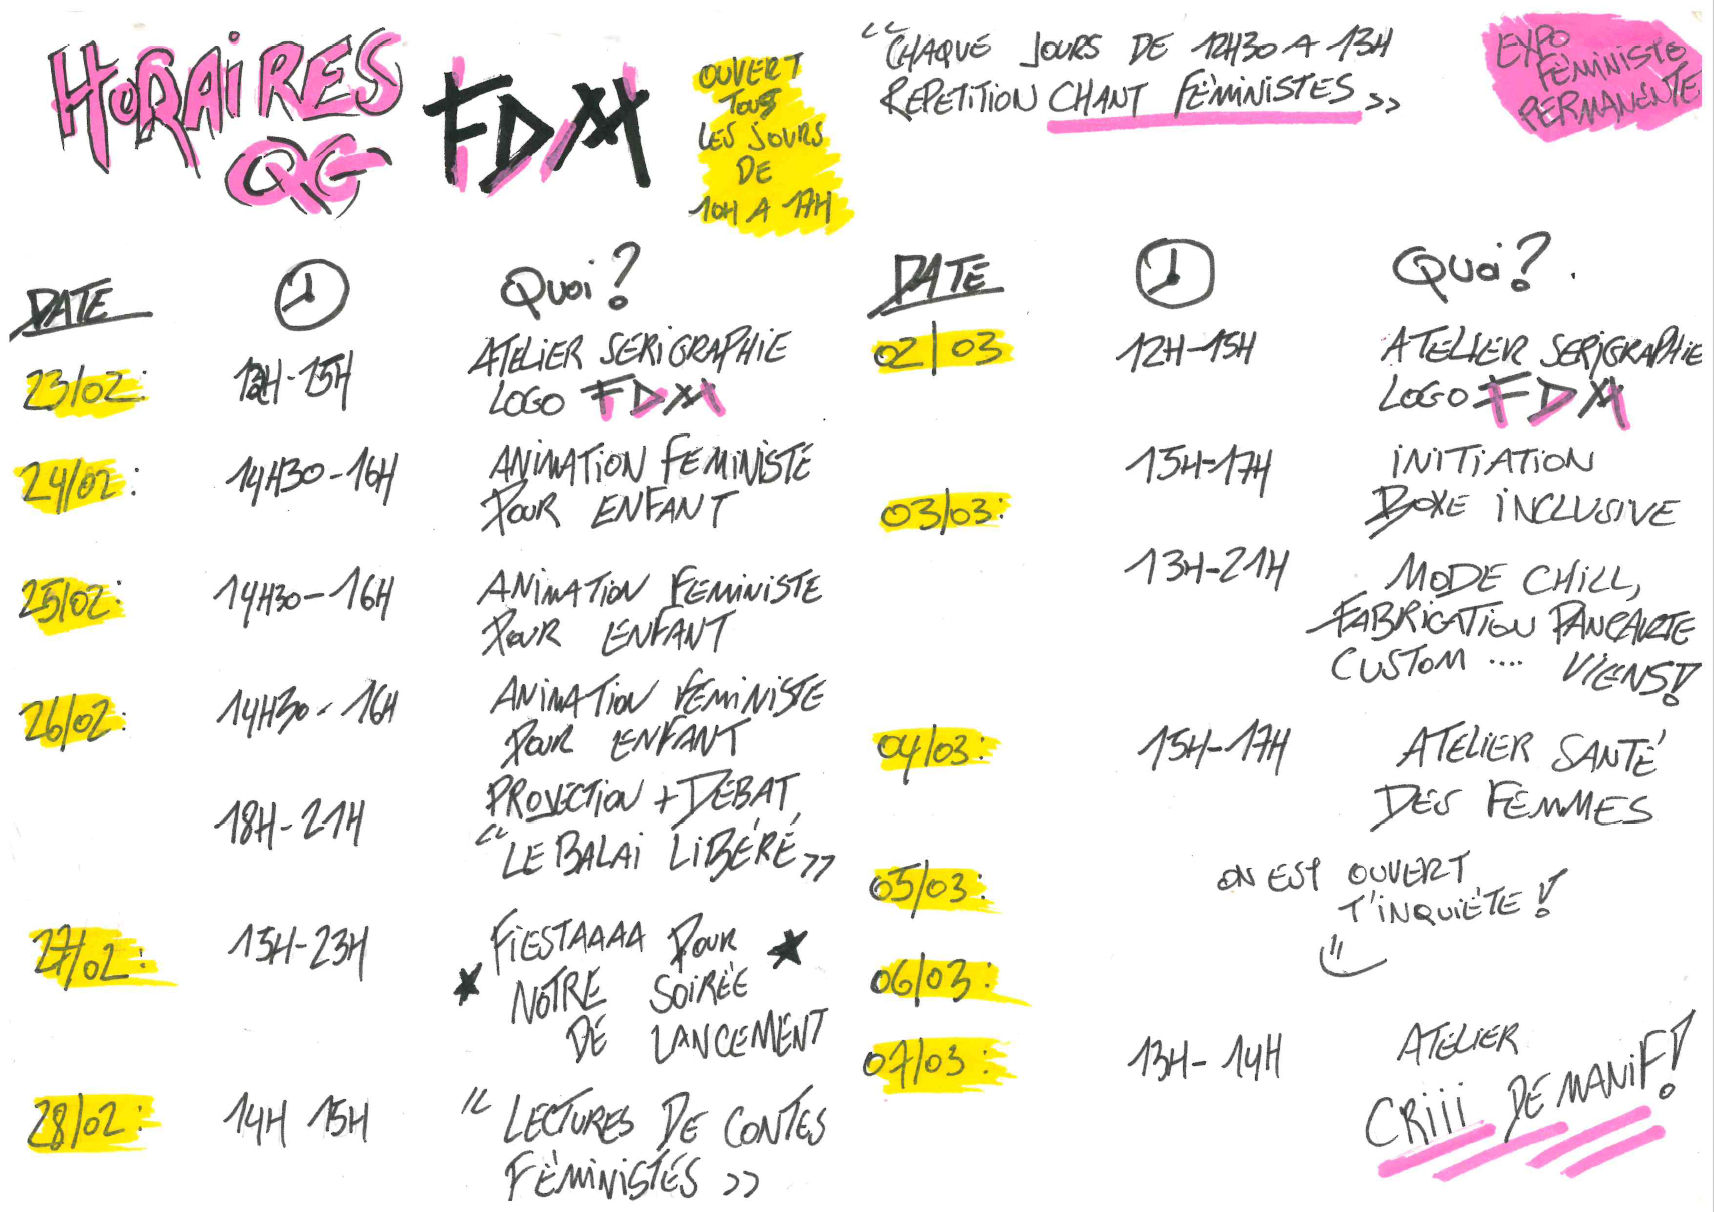 HORAIRES
QG
FDM
OUVERT
TOUS
LES JOURS
DE
10H A 17H
"CHAQUE JOURS DE 12H30 A 13H
REPETITION CHANT FÉMINISTES »
EXPO
FÉMINISTE
PERMANENTE
DATE
Quoi?
23/02: 12H-15H ATELIER SERIGRAPHIE
LOGO FDM
24/02: 14H30-16H ANIMATION FEMINISTE
POUR ENFANT
25/02: 14H30-16H ANIMATION FEMINISTE
POUR ENFANT
26/02: 14H30-16H ANIMATION FEMINISTE
POUR ENFANT
18H-21H PROJECTION + DÉBAT
"LE BALAI LIBÉRÉ»
27/02: 15H-23H FIESTAAAA POUR
NOTRE SOIRÉE
DE LANCEMENT
28/02: 14H 15H "LECTURES DE CONTES
FÉMINISTES »
DATE
Quoi?.
02/03 12H-15H ATELIER SERIGRAPHIE
LOGO FDM
15H-17H INITIATION
03/03: BOXE INCLUSIVE
13H-21H MODE CHILL,
FABRICATION PANCARTE
CUSTOM .... VIENS!
04/03: 15H-17H ATELIER SANTÉ
DES FEMMES
05/03: ON EST OUVERT
T'INQUIÈTE !
06/03:
07/03: 13H-14H ATELIER
CRIII DE MANIF!